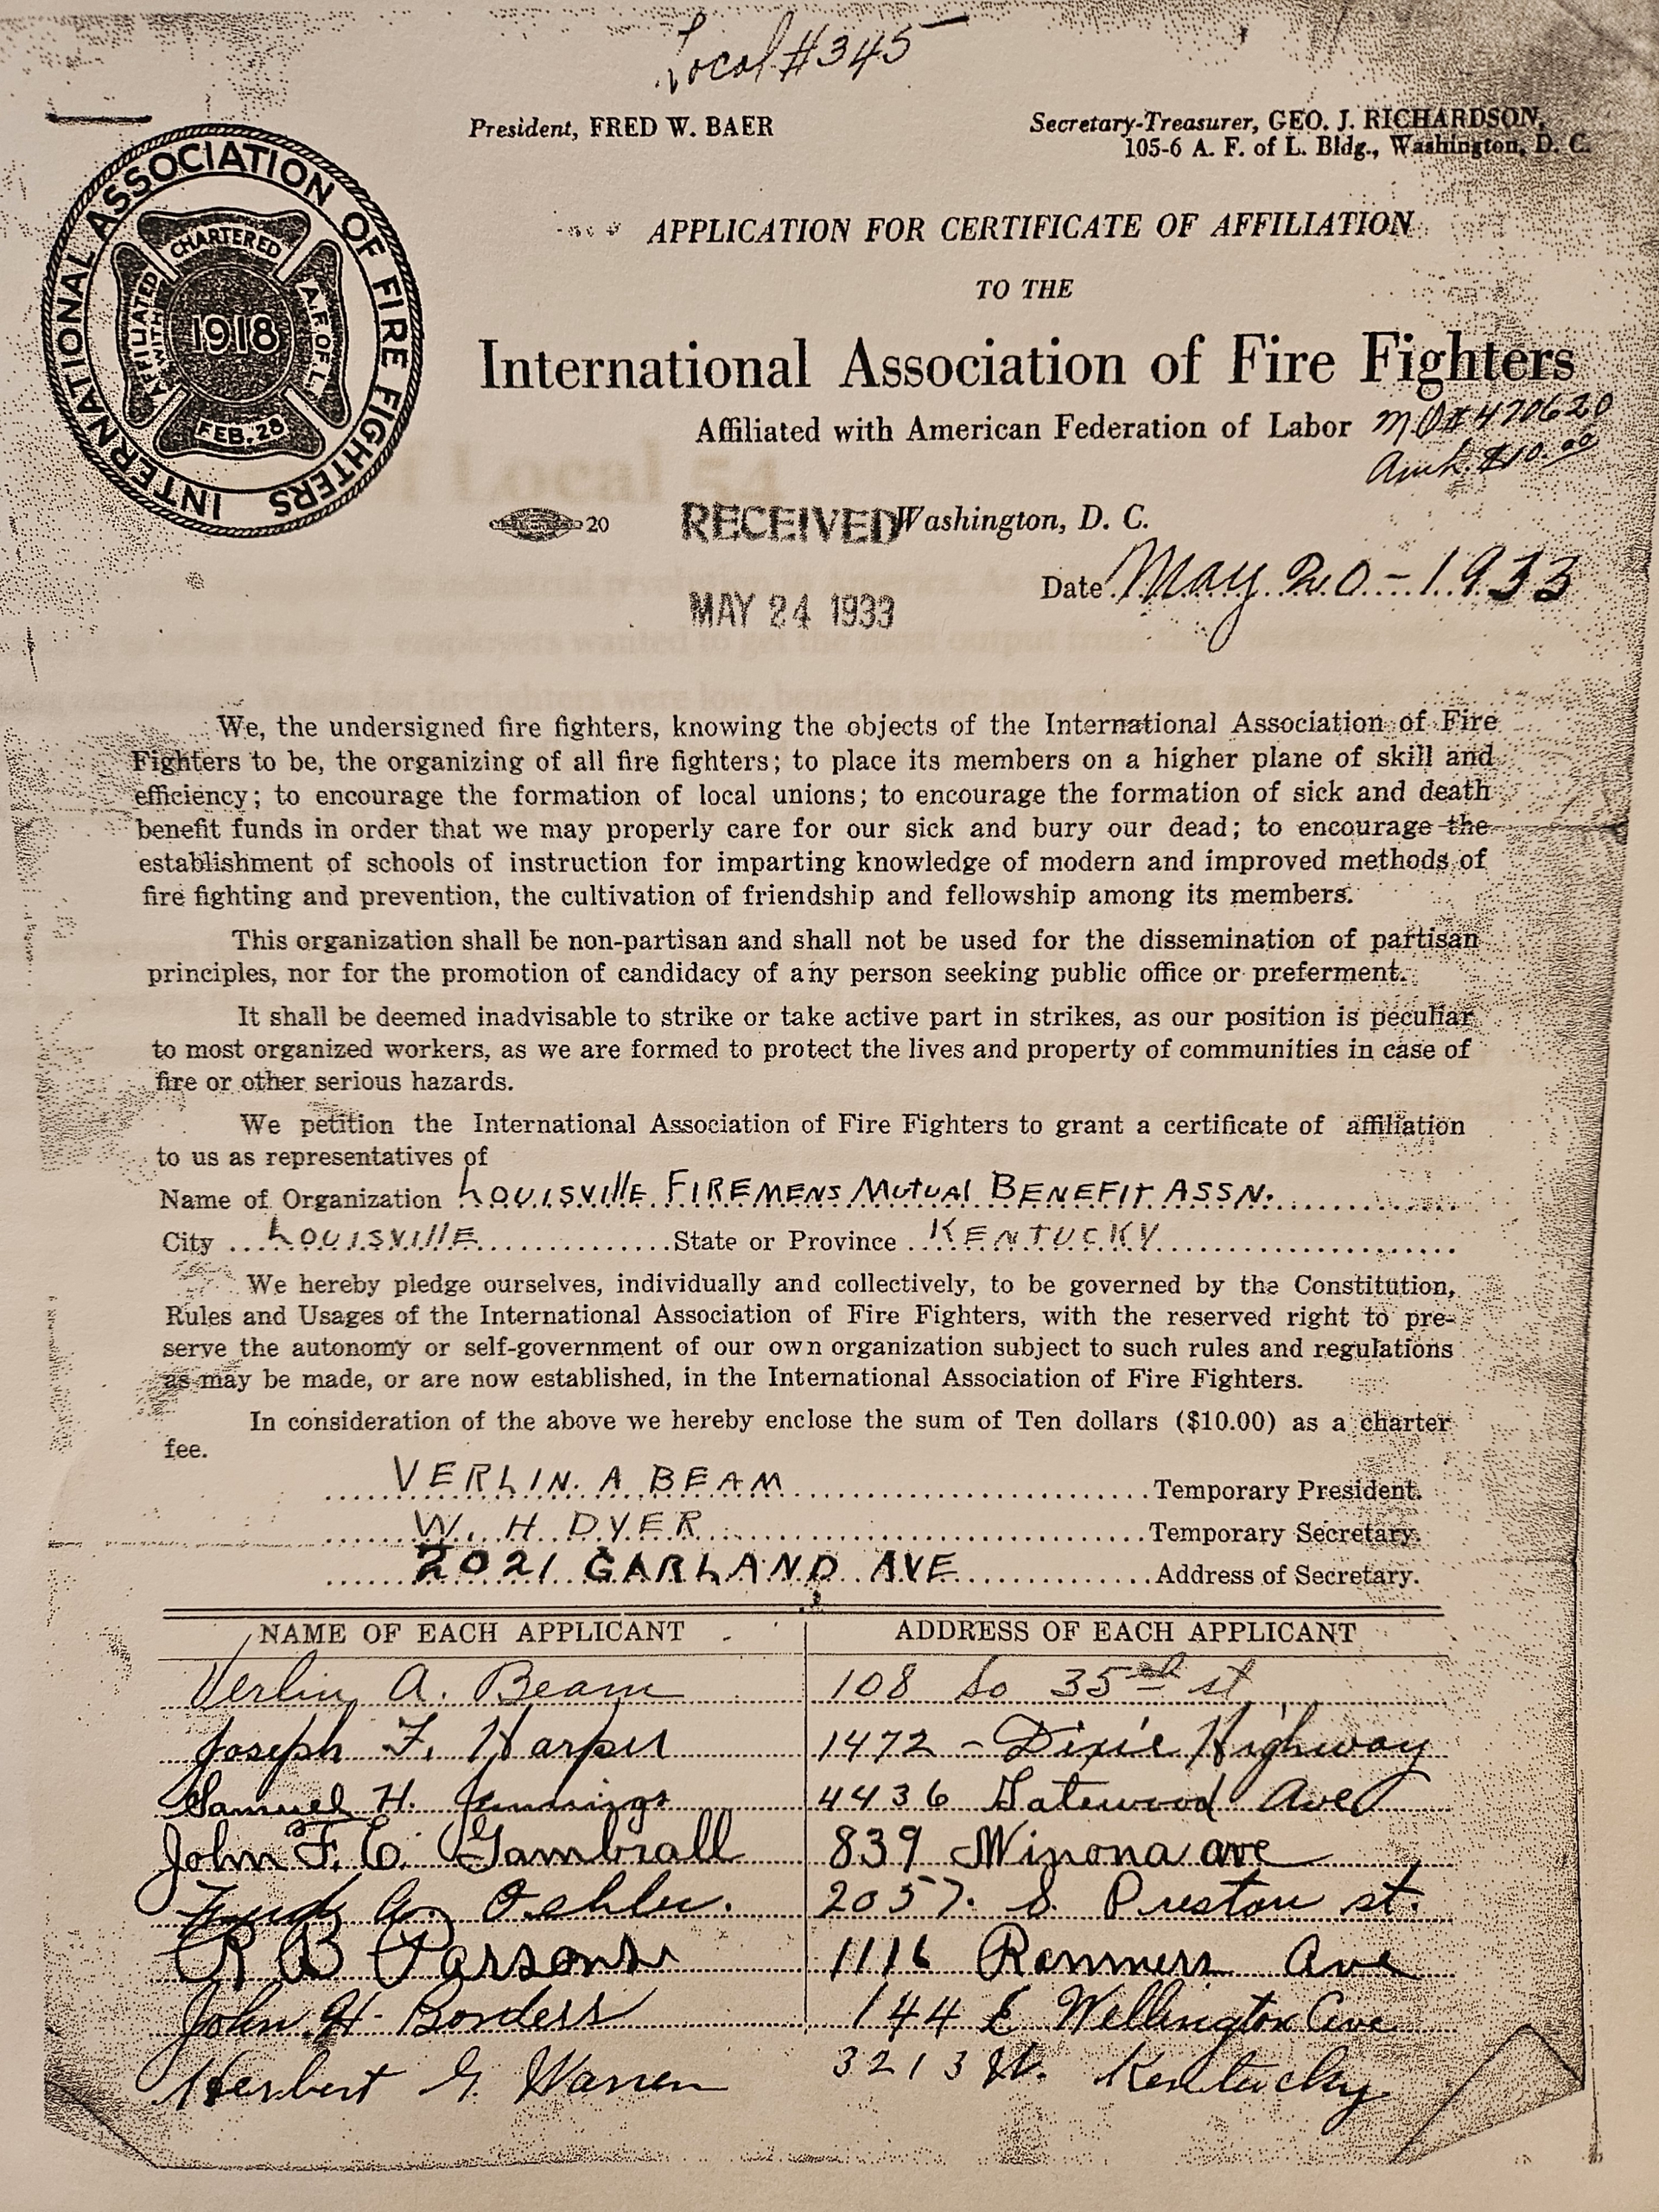 Local #345
President, FRED W. BAER
Secretary-Treasurer, GEO. J. RICHARDSON,
105-6 A. F. of L. Bldg., Washington, D. C.
INTERNATIONAL ASSOCIATION OF FIRE FIGHTERS
CHARTERED
AFFILIATED WITH
1918
A.F. OF L.
FEB. 28
APPLICATION FOR CERTIFICATE OF AFFILIATION
TO THE
International Association of Fire Fighters
Affiliated with American Federation of Labor
M.O # 470620
Amt. $10.00
Local 54
20
RECEIVED
Washington, D. C.
Date May 20-1933
MAY 24 1933
We, the undersigned fire fighters, knowing the objects of the International Association of Fire
Fighters to be, the organizing of all fire fighters; to place its members on a higher plane of skill and
efficiency; to encourage the formation of local unions; to encourage the formation of sick and death
benefit funds in order that we may properly care for our sick and bury our dead; to encourage the
establishment of schools of instruction for imparting knowledge of modern and improved methods of
fire fighting and prevention, the cultivation of friendship and fellowship among its members.
This organization shall be non-partisan and shall not be used for the dissemination of partisan
principles, nor for the promotion of candidacy of any person seeking public office or preferment.
It shall be deemed inadvisable to strike or take active part in strikes, as our position is peculiar
to most organized workers, as we are formed to protect the lives and property of communities in case of
fire or other serious hazards.
We petition the International Association of Fire Fighters to grant a certificate of affiliation
to us as representatives of
Name of Organization LOUISVIllE FIREMENS MUTUAL BENEFIT ASSN.
City LOUISVIllE State or Province KENTUCKY
We hereby pledge ourselves, individually and collectively, to be governed by the Constitution,
Rules and Usages of the International Association of Fire Fighters, with the reserved right to pre-
serve the autonomy or self-government of our own organization subject to such rules and regulations
as may be made, or are now established, in the International Association of Fire Fighters.
In consideration of the above we hereby enclose the sum of Ten dollars ($10.00) as a charter
fee.
VERLIN. A BEAM Temporary President.
W. H DYER Temporary Secretary.
2021 GARLAND AVE Address of Secretary.
NAME OF EACH APPLICANT ADDRESS OF EACH APPLICANT
Verlin A. Beam 108 So 35th st
Joseph F. Harper 1472 - Dixie Highway
Samuel H. Jennings 4436 Gatewood Ave
John F. C. Gambrall 839 Winona ave
Oehler. 2057 S. Preston st.
R B Parsons 1116 Rammers Ave
John H. Borders 144 E Wellington Ave
Herbert G. Warren 3213 W. Kentucky